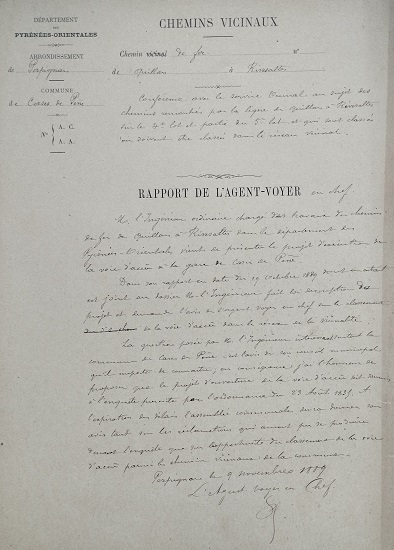 DÉPARTEMENT
DES
PYRÉNÉES-ORIENTALES
ARRONDISSEMENT
de Perpignan
COMMUNE
de Cases de Pène
N° A. C.
A. A.
CHEMINS VICINAUX
Chemin vicinal de fer
de Quillan à Rivesaltes
Conférence avec le service vicinal au sujet des
chemins rencontrés par la ligne de Quillan à Rivesaltes
sur le 4e lot et partie du 5e lot et qui sont classés
ou doivent être classés dans le réseau vicinal.
RAPPORT DE L'AGENT-VOYER en chef
M. l'Ingénieur ordinaire chargé des travaux du chemin
de fer de Quillan à Rivesaltes dans le département des
Pyrénées-Orientales vient de présenter le projet d'exécution de
la voie d'accès à la gare de Cases de Pène.
Dans son rapport en date du 19 octobre 1889 dont un extrait
est joint au dossier M. l'Ingénieur fait la description du
projet et demande l'avis de l'agent voyer en chef sur le classement
de la voie d'accès dans le réseau de la vicinalité
La question posée par M. l'Ingénieur intéressant la
commune de Cases de Pène et l'avis de son conseil municipal
qu'il importe de connaître, en conséquence j'ai l'honneur de
proposer que le projet d'ouverture de la voie d'accès soit soumis
à l'enquête prescrite par l'ordonnance du 23 Août 1835. A
l'expiration des délais l'assemblée communale devra donner son
avis tant sur les réclamations qui auront pu se produire
durant l'enquête que sur l'opportunité du classement de la voie
d'accès parmi les chemins vicinaux de la commune.
Perpignan le 9 novembre 1889
L'Agent voyer en Chef